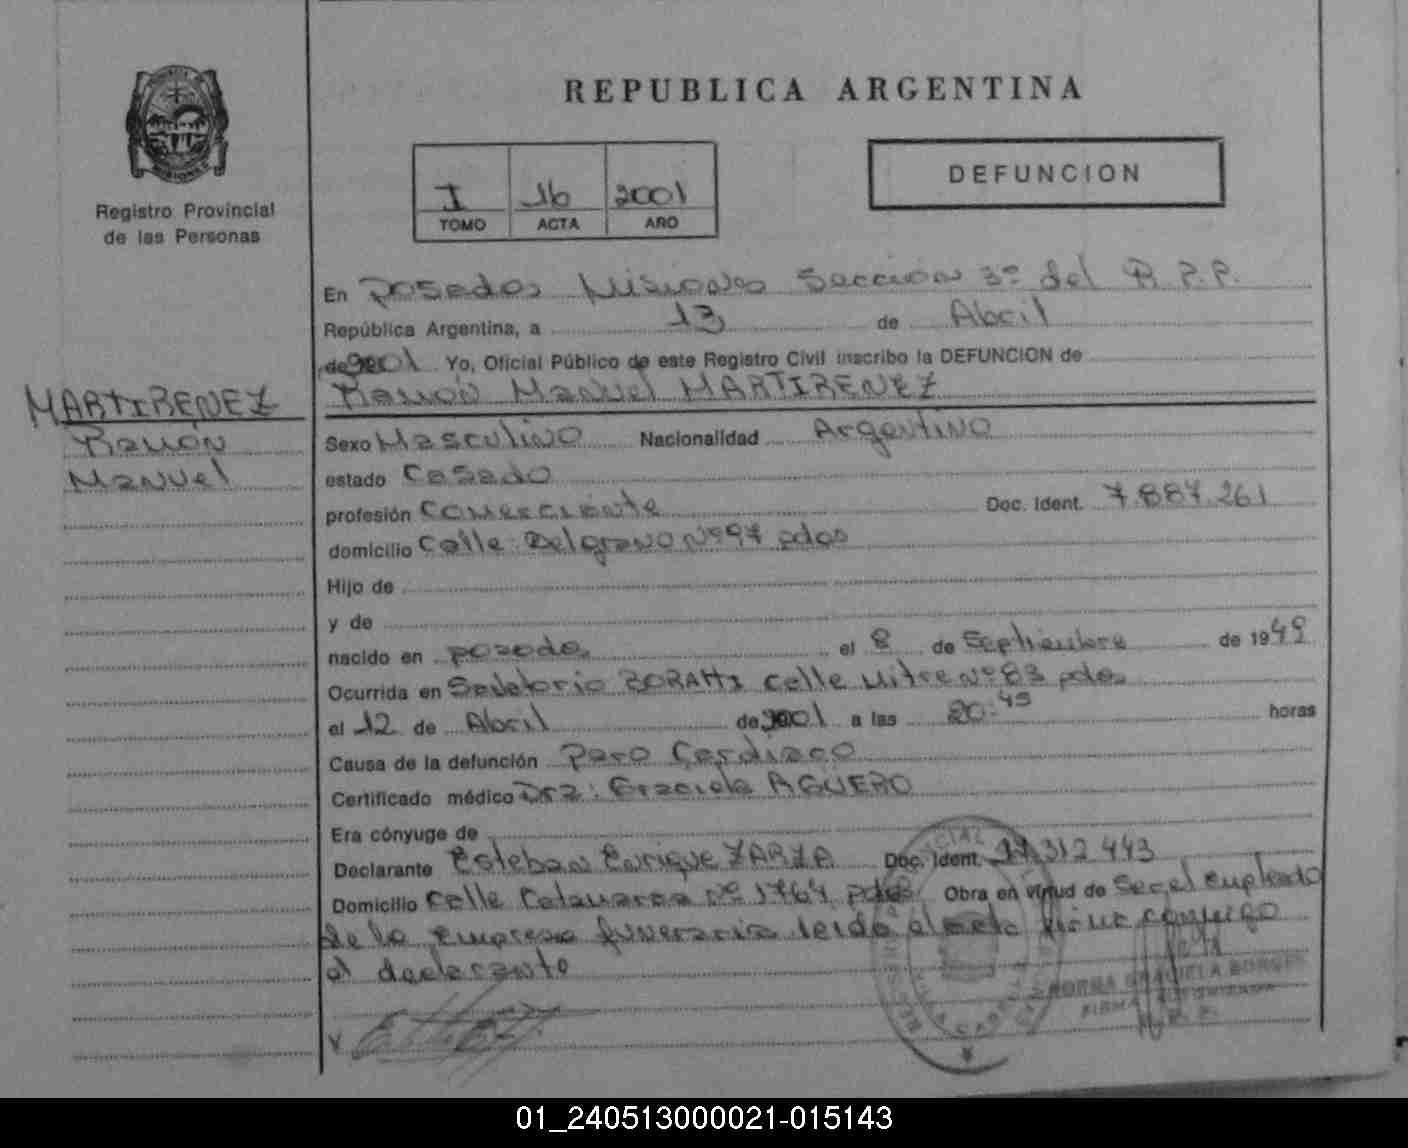 REPUBLICA ARGENTINA
Registro Provincial
de las Personas
I 16 2001
TOMO ACTA AÑO
DEFUNCION
En Posadas Misiones Sección 3º del R.P.P.
República Argentina, a 13 de Abril
de 2001 Yo, Oficial Público de este Registro Civil inscribo la DEFUNCION de
Ramón Manuel MARTIRENEZ
MARTIRENEZ
Ramón
Manuel
Sexo Masculino Nacionalidad Argentino
estado Casado
profesión Comerciante Doc. Ident. 7.887.261
domicilio Calle: Belgrano Nº 97 pdas
Hijo de
y de
nacido en posadas el 8 de Septiembre de 1949
Ocurrida en Sanatorio BORATTI calle Mitre Nº 83 pdas
el 12 de Abril de 2001 a las 20:45 horas
Causa de la defunción Paro Cardiaco
Certificado médico Dra: Graciela AGUERO
Era cónyuge de
Declarante Esteban Enrique ZARZA Doc. Ident. 312 443
Domicilio Calle Catamarca Nº 1764 pdas Obra en virtud de Ser el empleado
de la empresa funeraria leida el acta firma conmigo
el declarante
NORMA GRACIELA BORGES
FIRMA AUTORIZADA
01_240513000021-015143